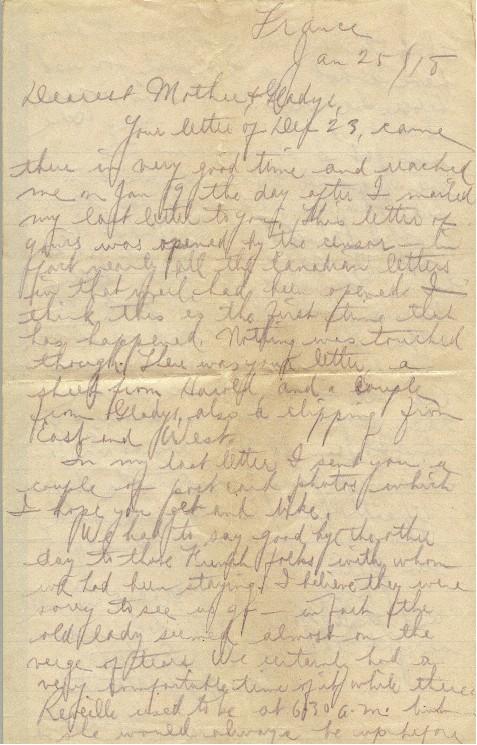 France
Jan 25/18
Dearest Mother & Gladys,
Your letter of Dec 23, came
there in very good time and reached
me on Jan 19 the day after I mailed
my last letter to you. This letter of
yours was opened by the censor — in
fact nearly all the Canadian letters
in that mail had been opened. I
think this is the first time that
has happened. Nothing was touched
though. There was your letter, a
sheet from Harold and a couple
from Gladys, also a clipping from
East and West.
In my last letter I sent you a
couple of post card photos, which
I hope you got and like.
We had to say good bye the other
day to those French folks with whom
we had been staying. I believe they were
sorry to see us go — in fact the
old lady seemed almost on the
verge of tears. We certainly had a
very comfortable time of it while there.
Reveille used to be at 6.30 a.m. but
she would always be up before